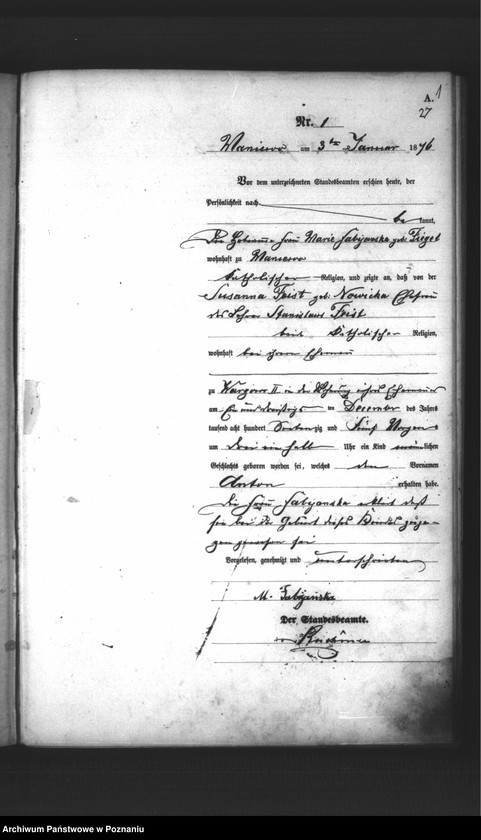 A. 1
27
Nr. 1
Maniewo am 3ten Januar 1876
Vor dem unterzeichneten Standesbeamten erschien heute, der
Persönlichkeit nach
be kannt,
Die Hebamme Frau Marie Fabijanska geb.
wohnhaft zu Maniewo
katholischer Religion, und zeigte an, daß von der
Susanna Feist geb: Nowicka Ehefrau
des Stanislaus Feist
beide katholischer Religion,
wohnhaft bei ihrem Ehemann
zu Wargowo II in der Wohnung ihres Ehemannes
am Ein und dreißigsten December des Jahrs
tausend acht hundert Siebenzig und Fünf Morgens
um drei ein halb Uhr ein Kind männlichen
Geschlechts geboren worden sei, welches den Vornamen
Anton erhalten habe.
Die Frau Fabijanska erklärt daß
sie bei der Geburt dieses Kindes zuge-
gen gewesen sei
Vorgelesen, genehmigt und unterschrieben
M. Fabijańska
Der Standesbeamte.
Archiwum Państwowe w Poznaniu